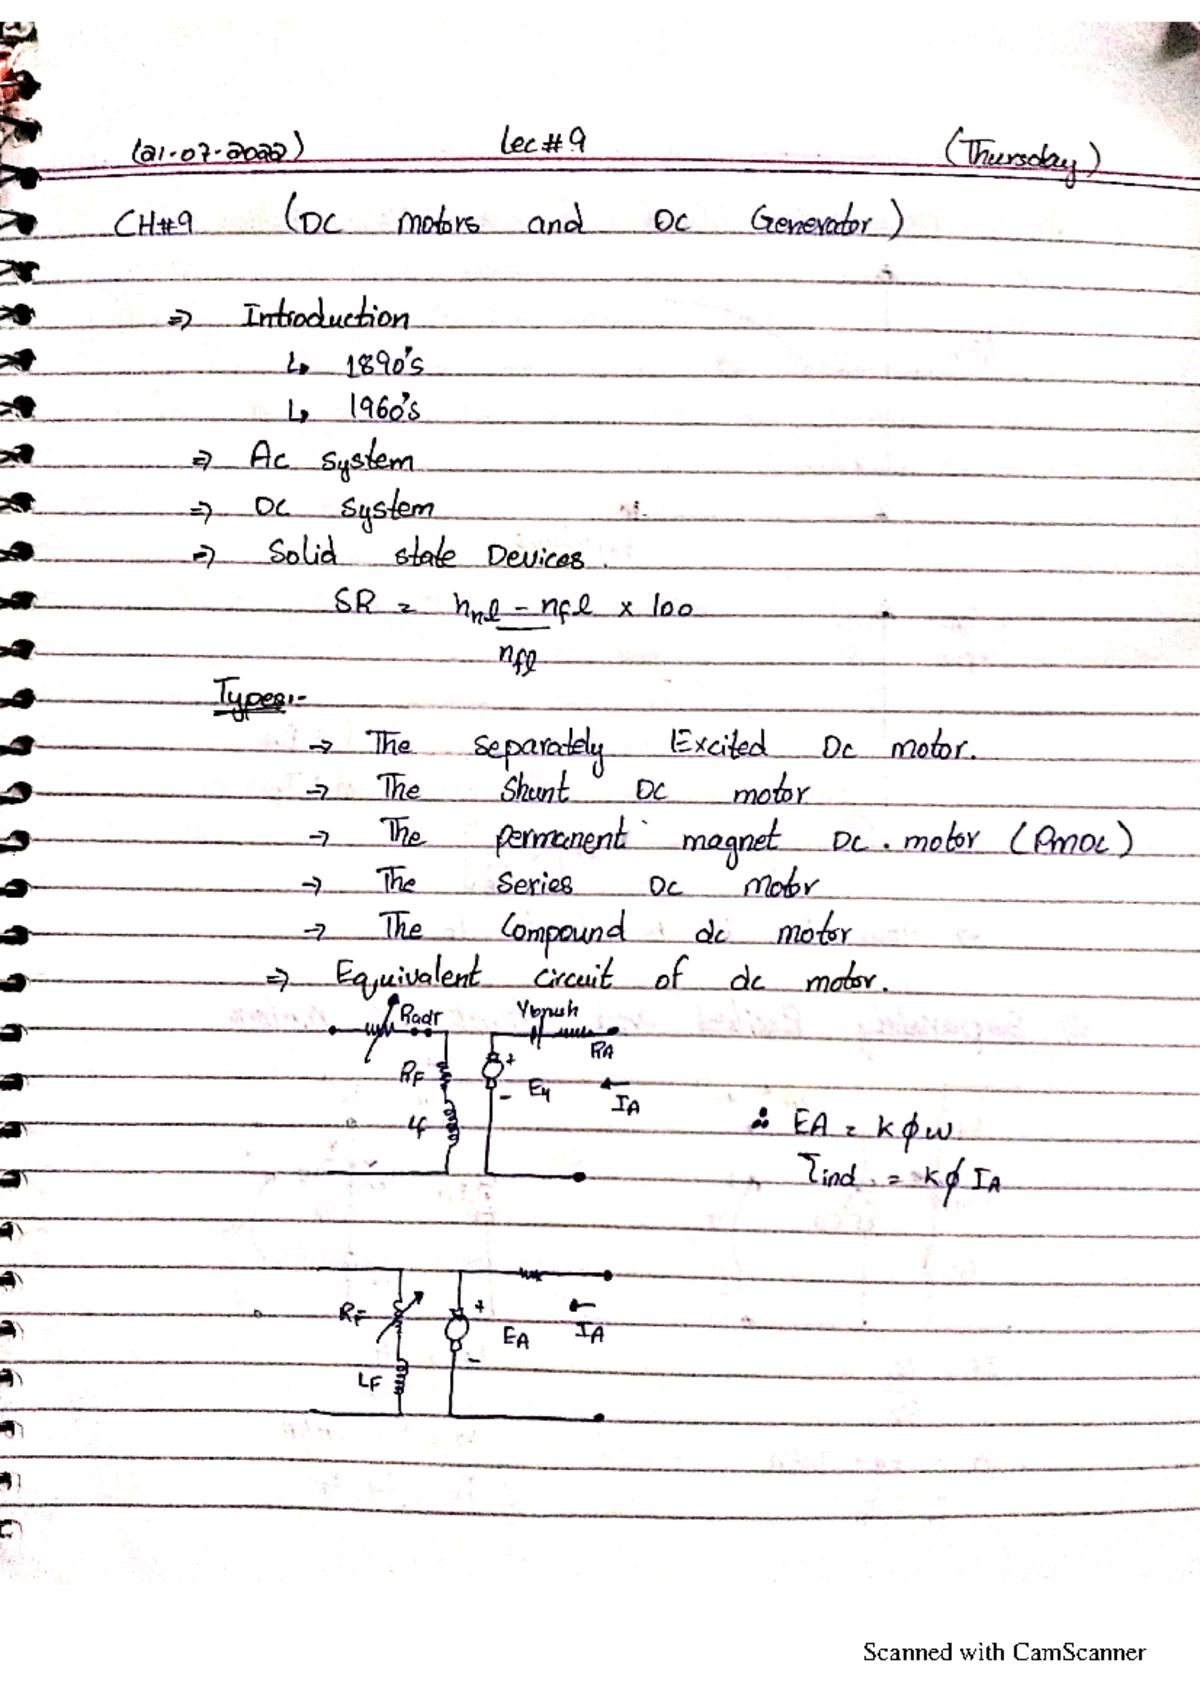 (21-07-2022) Lec#9 (Thursday)
CH#9 (DC motors and DC Generator)
⇒ Introduction
↳ 1890's
↳ 1960's
⇒ Ac system
⇒ DC system
⇒ Solid state Devices.
SR = nnl - nfl x 100
nfl
Types:-
→ The separately Excited Dc motor.
→ The Shunt DC motor
→ The permanent magnet DC. motor (PMDC)
→ The Series DC motor
→ The Compound dc motor
⇒ Equivalent circuit of dc motor.
Radj Vbrush
RA
RF EA
IA
LF
∴ EA = kϕω
τind = kϕ IA
RF EA IA
+
LF -
Scanned with CamScanner